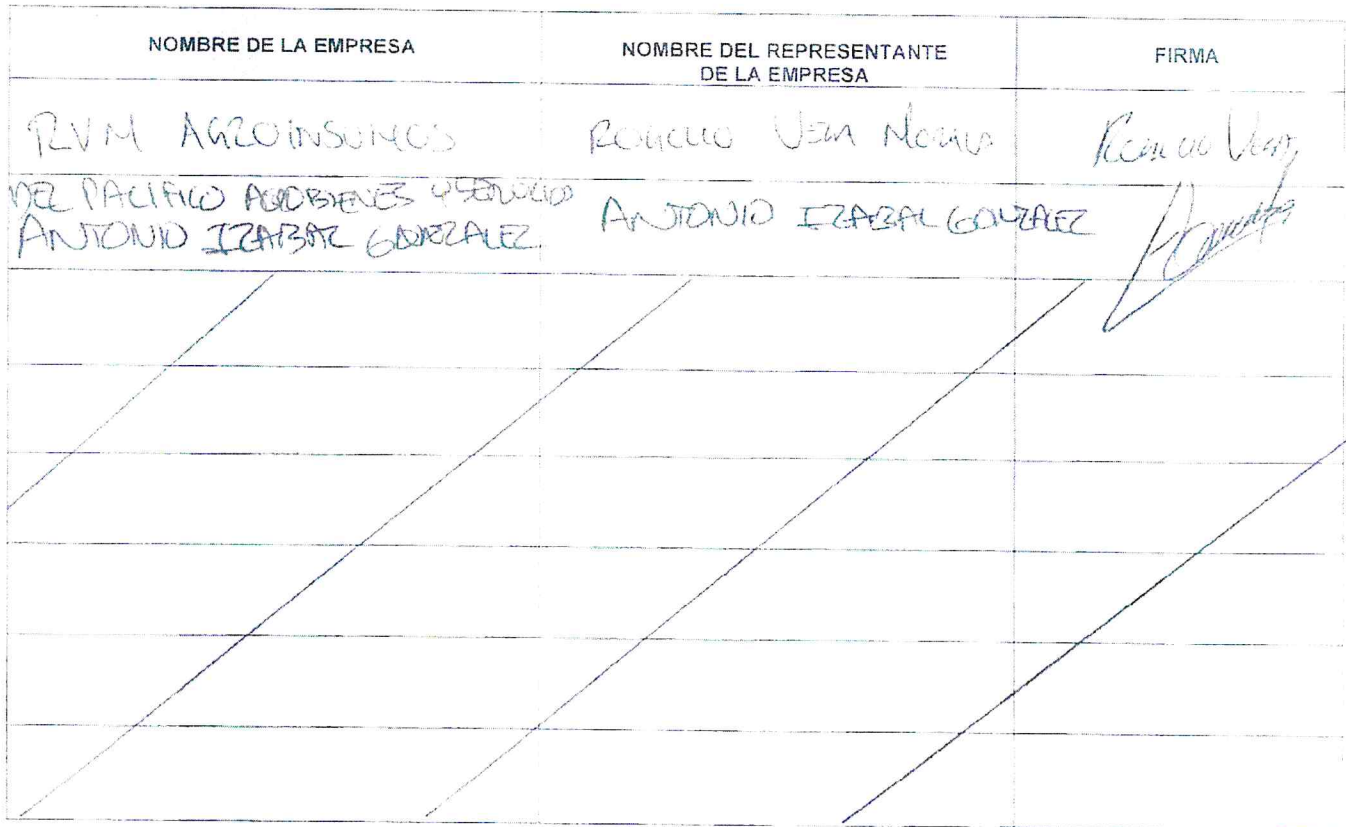 NOMBRE DE LA EMPRESA
NOMBRE DEL REPRESENTANTE
DE LA EMPRESA
FIRMA
RVM AGROINSUMOS
ROGELIO VEGA
Rogelio Vega
DEL PACIFICO AGROBIENES Y SERVICIOS
ANTONIO IZABAL GONZALEZ
ANTONIO IZABAL GONZALEZ